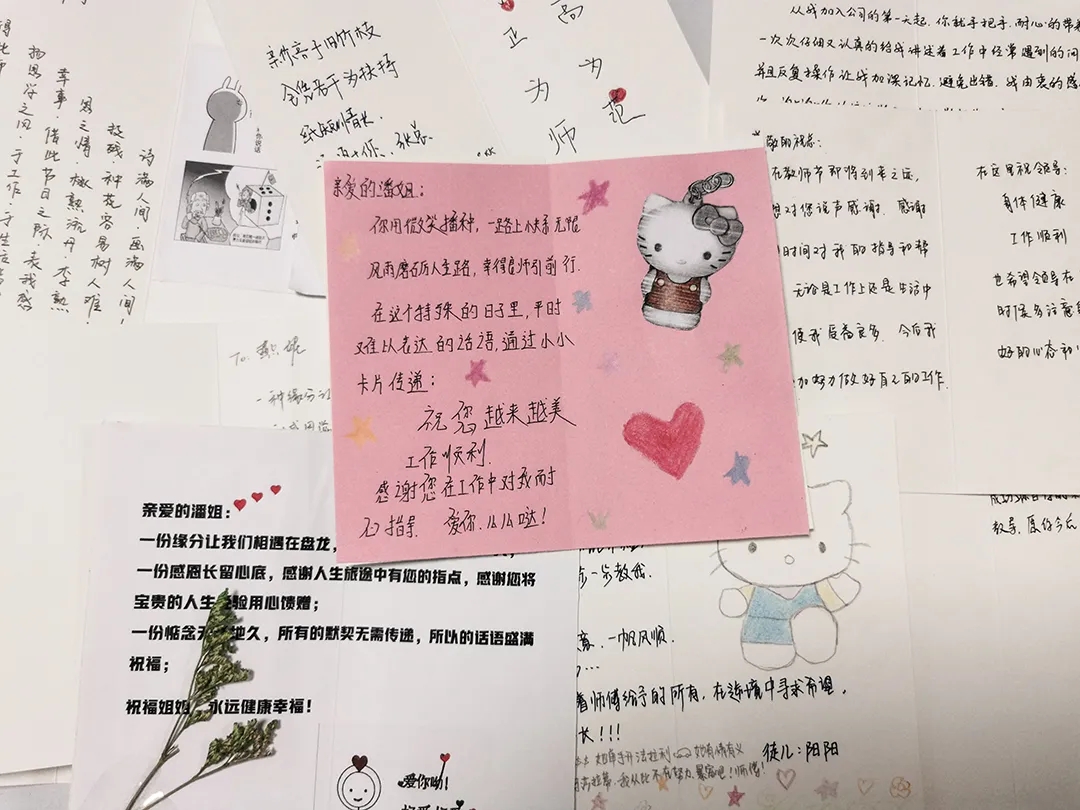 亲爱的潘姐：
你用微笑播种，一路上快乐无限
风雨磨砺人生路，幸得良师引前行.
在这个特殊的日子里，平时
难以表达的话语，通过小小
卡片传递：
祝您越来越美
工作顺利.
感谢您在工作中对我耐
心指导. 爱你.么么哒！
亲爱的潘姐：
一份缘分让我们相遇在盘龙，
一份感恩长留心底，感谢人生旅途中有您的指点，感谢您将
宝贵的人生 验用心馈赠；
一份惦念 地久，所有的默契无需传递，所以的话语盛满
祝福；
祝福姐姐，永远健康幸福！
爱你呦！
诗满人间.画满人间！
种花容易树人难.
恩之情.
幸事.借此节日之际.表我感
新竹高于旧竹枝
全凭 为扶持
纸短情长.
高
正
为
为
师
范
你说话
从我加入公司的第一天起.你就手把手.耐心的带
一次次仔细又认真的给我讲述着工作中经常遇到的问
并且反复操作让我加深记忆.避免出错.我由衷的感
在教师节即将到来之际，
想对您说声感谢.感谢
时间对我的指导和帮
无论是工作上还是生活中
使我受益良多.今后我
加努力做好自己的工作.
在这里祝领导：
身体健康
工作顺利
也希望领导在
时候多注意
好的心态和
教导.愿你今后
To.
一种缘分
步一步教我.
一帆风顺.
着师傅给予的所有，在逆境中寻求希望，
长！！！
徒儿：阳阳